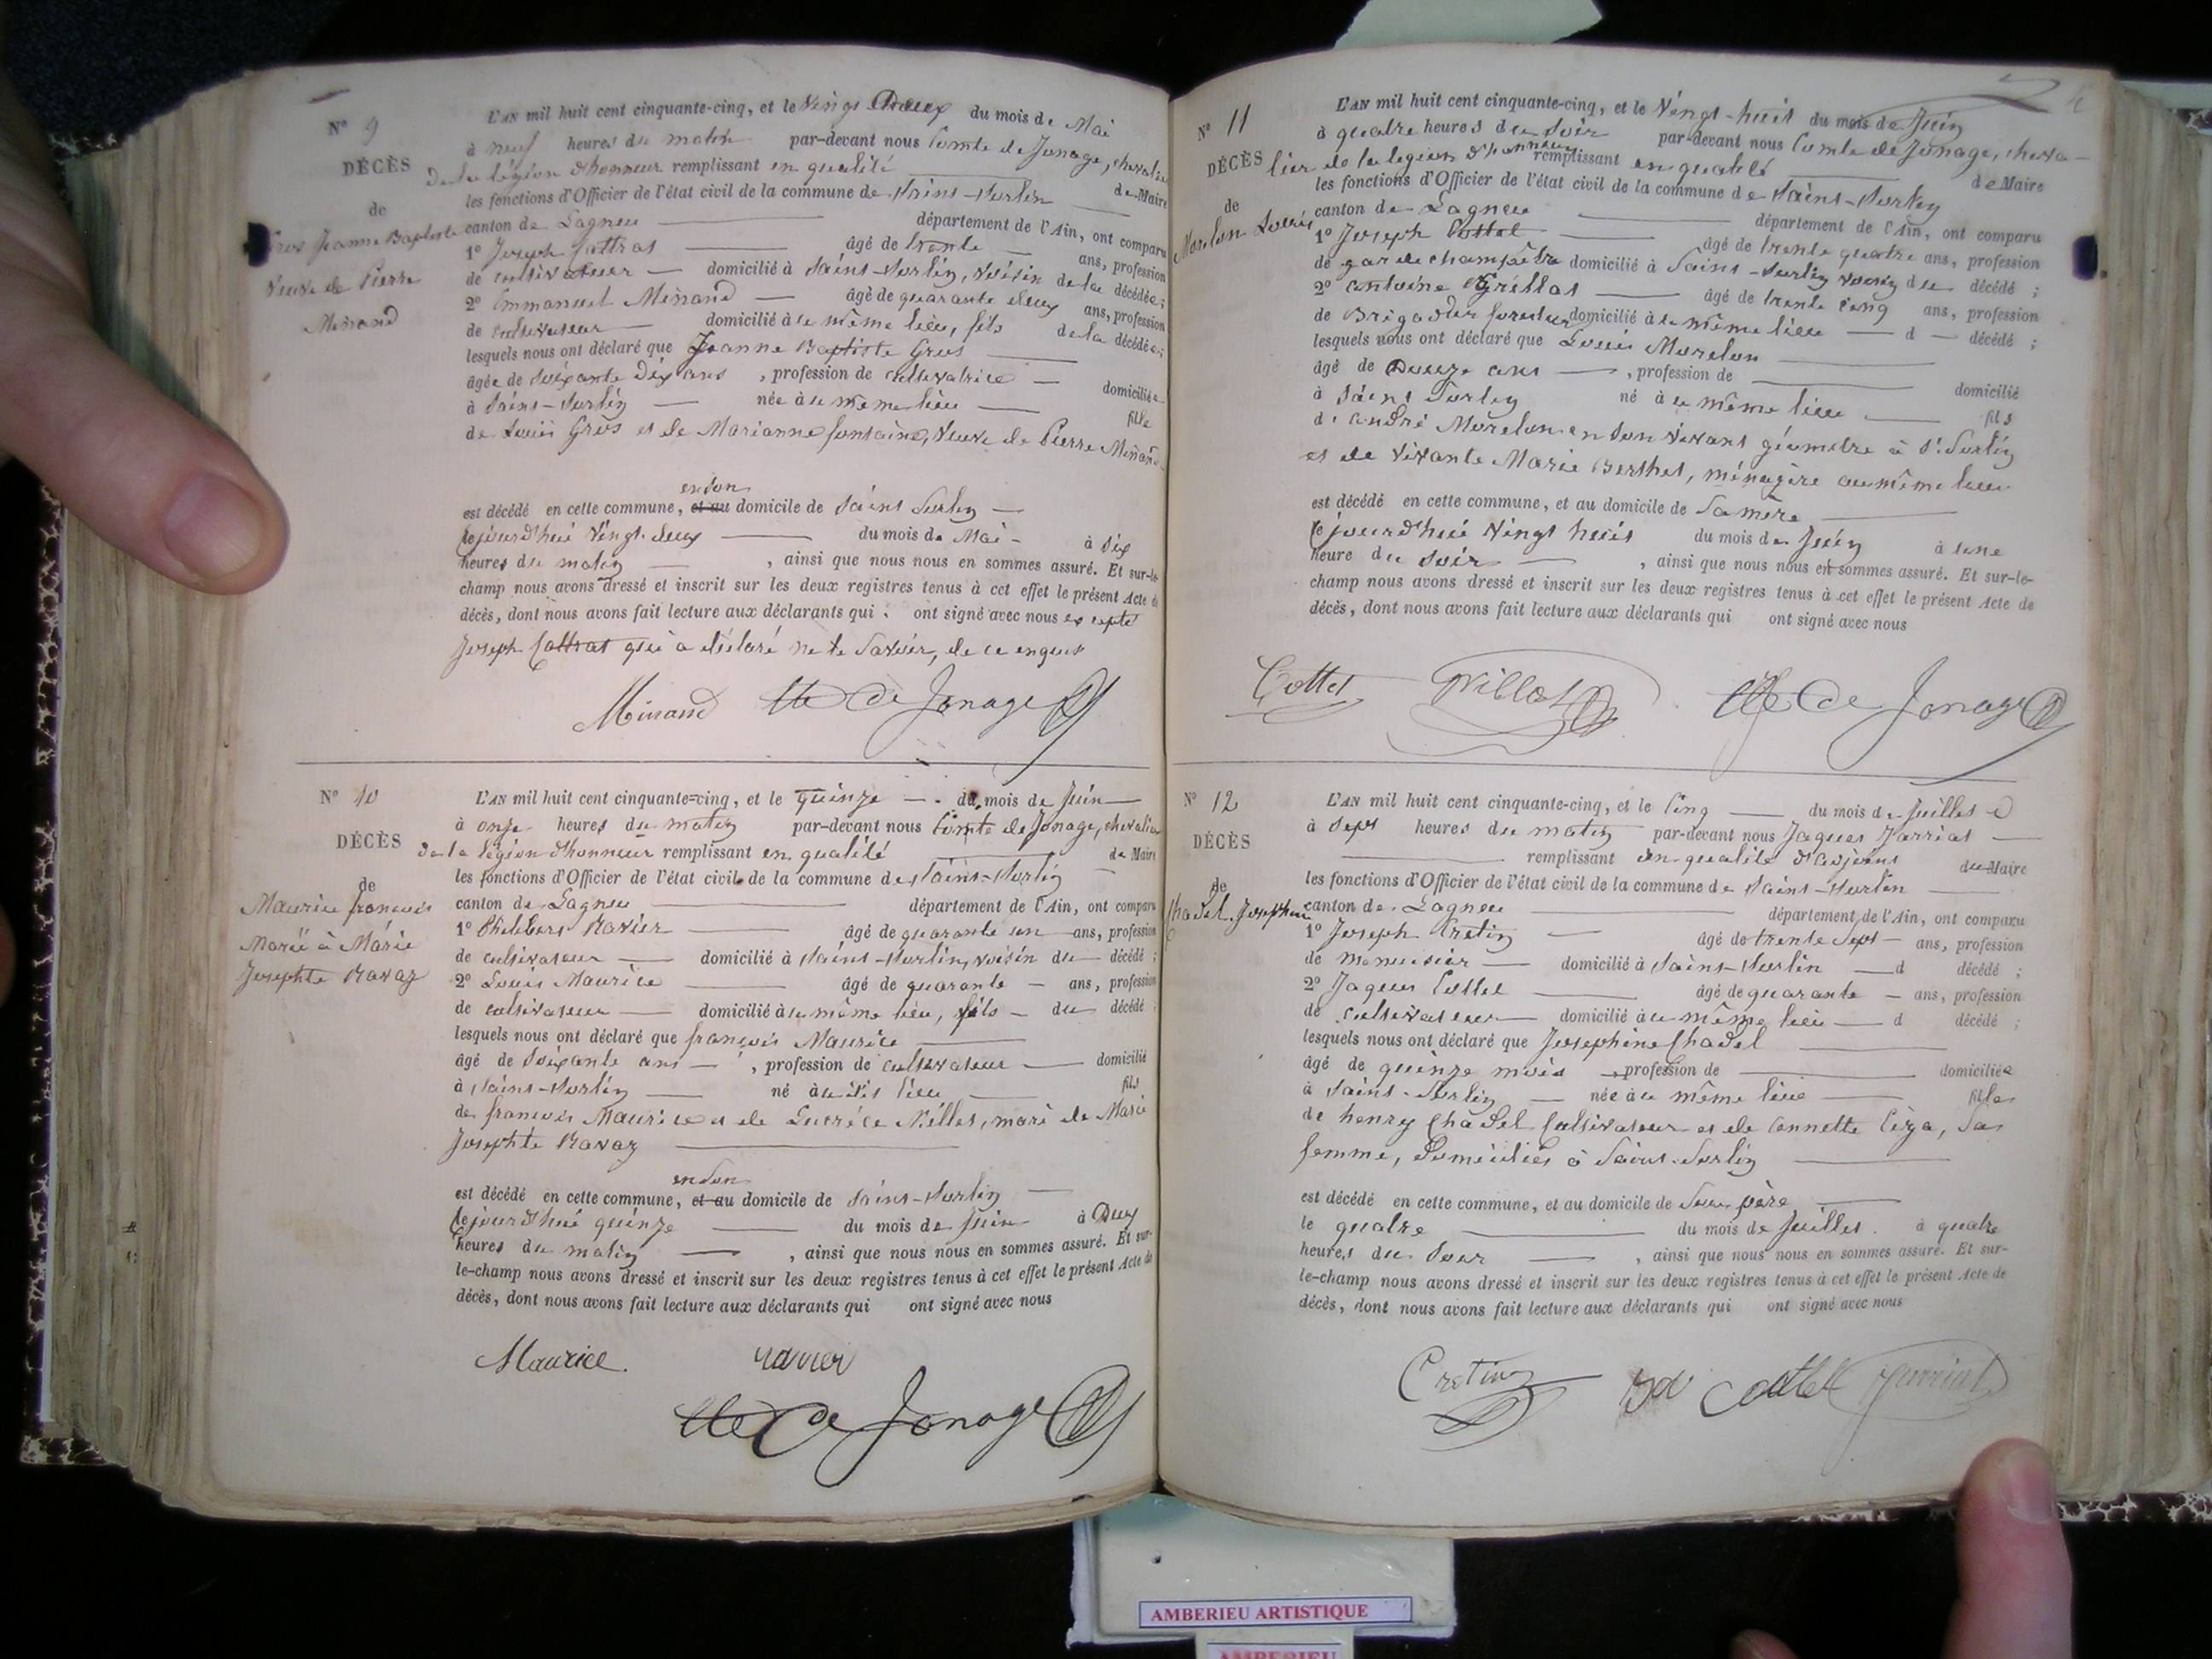 N° 9
DÉCÈS
de
Gros Jeanne Baptiste
Veuve de Pierre
Minand
L'AN mil huit cent cinquante-cinq, et le Vingt Deux du mois de Mai
à neuf heures du matin par-devant nous Comte de Jonage, chevalier
de la légion d'honneur remplissant en qualité de Maire
les fonctions d'Officier de l'état civil de la commune de Saint-Sorlin
canton de Lagneu département de l'Ain, ont comparu
1° Joseph Cottrat âgé de trente ans, profession
de cultivateur domicilié à Saint-Sorlin, voisin de la décédée ;
2° Emmanuel Minand âgé de quarante deux ans, profession
de cultivateur domicilié à le même lieu, fils de la décédée ;
lesquels nous ont déclaré que Jeanne Baptiste Gros
âgée de soixante dix ans , profession de cultivatrice domiciliée
à Saint-Sorlin née à le même lieu fille
de Louis Gros et de Marianne fontaine, Veuve de Pierre Minand
en son
est décédé en cette commune, et au domicile de Saint Sorlin
cejourd'hui Vingt-deux du mois de Mai à six
heures du matin , ainsi que nous nous en sommes assuré. Et sur-le-
champ nous avons dressé et inscrit sur les deux registres tenus à cet effet le présent Acte de
décès, dont nous avons fait lecture aux déclarants qui ont signé avec nous excepté
Joseph Cottrat qui a déclaré ne le savoir, de ce enquis
Minand Cte de Jonage
N° 10
DÉCÈS
de
Maurice françois
Marié à Marie
Josephte Ravaz
L'AN mil huit cent cinquante-cinq, et le quinze du mois de Juin
à onze heures du matin par-devant nous Comte de Jonage, chevalier
de la légion d'honneur remplissant en qualité de Maire
les fonctions d'Officier de l'état civil de la commune de Saint-Sorlin
canton de Lagneu département de l'Ain, ont comparu
1° Philibert Ravier âgé de quarante un ans, profession
de cultivateur domicilié à Saint-Sorlin, voisin du décédé ;
2° Louis Maurice âgé de quarante ans, profession
de cultivateur domicilié à le même lieu, fils du décédé ;
lesquels nous ont déclaré que françois Maurice
âgé de soixante ans , profession de cultivateur domicilié
à Saint-Sorlin né à le dit lieu fils
de françois Maurice et de Lucrèce Millet, mari de Marie
Josephte Ravaz
en son
est décédé en cette commune, et au domicile de Saint-Sorlin
cejourd'hui quinze du mois de Juin à Deux
heures du matin , ainsi que nous nous en sommes assuré. Et sur-
le-champ nous avons dressé et inscrit sur les deux registres tenus à cet effet le présent Acte de
décès, dont nous avons fait lecture aux déclarants qui ont signé avec nous
Maurice. ravier
Cte de Jonage
N° 11
DÉCÈS
de
Morelon Louis
L'AN mil huit cent cinquante-cinq, et le Vingt-huit du mois de Juin
à quatre heures du soir par-devant nous Comte de Jonage, cheva-
lier de la legion d'honneur remplissant en qualité de Maire
les fonctions d'Officier de l'état civil de la commune de Saint-Sorlin
canton de Lagneu département de l'Ain, ont comparu
1° Joseph Cottet âgé de trente quatre ans, profession
de garde champêtre domicilié à Saint-Sorlin voisin du décédé ;
2° antoine Grillat âgé de trente cinq ans, profession
de Brigadier forestier domicilié à le même lieu d décédé ;
lesquels nous ont déclaré que Louis Morelon
âgé de Douze ans , profession de domicilié
à Saint Sorlin né à le même lieu fils
d'andré Morelon en son vivant géomètre à St Sorlin
et de vivante Marie Berthet, ménagère au même lieu
est décédé en cette commune, et au domicile de Sa mère
cejourd'hui Vingt huit du mois de Juin à une
heure du soir , ainsi que nous nous en sommes assuré. Et sur-le-
champ nous avons dressé et inscrit sur les deux registres tenus à cet effet le présent Acte de
décès, dont nous avons fait lecture aux déclarants qui ont signé avec nous
Cottet Grillat Cte de Jonage
N° 12
DÉCÈS
de
Chadel Josephine
L'AN mil huit cent cinquante-cinq, et le Cinq du mois de Juillet
à sept heures du matin par-devant nous Jaques Jarriat
remplissant en qualité d'adjoint du Maire
les fonctions d'Officier de l'état civil de la commune de Saint-Sorlin
canton de Lagneu département de l'Ain, ont comparu
1° Joseph Cretin âgé de trente sept ans, profession
de menuisier domicilié à Saint-Sorlin d décédé ;
2° Jaques Cottet âgé de quarante ans, profession
de cultivateur domicilié à le même lieu d décédé ;
lesquels nous ont déclaré que Josephine Chadel
âgé de quinze mois , profession de domiciliée
à Saint-Sorlin née à le même lieu fille
de henry Chadel Cultivateur et de Cennette Ciza, sa
femme, Domiciliés à Saint-Sorlin
est décédé en cette commune, et au domicile de Son père
le quatre du mois de Juillet à quatre
heures du soir , ainsi que nous nous en sommes assuré. Et sur-
le-champ nous avons dressé et inscrit sur les deux registres tenus à cet effet le présent Acte de
décès, dont nous avons fait lecture aux déclarants qui ont signé avec nous
Cretin Cottet Jarriat
AMBERIEU ARTISTIQUE
AMBERIEU